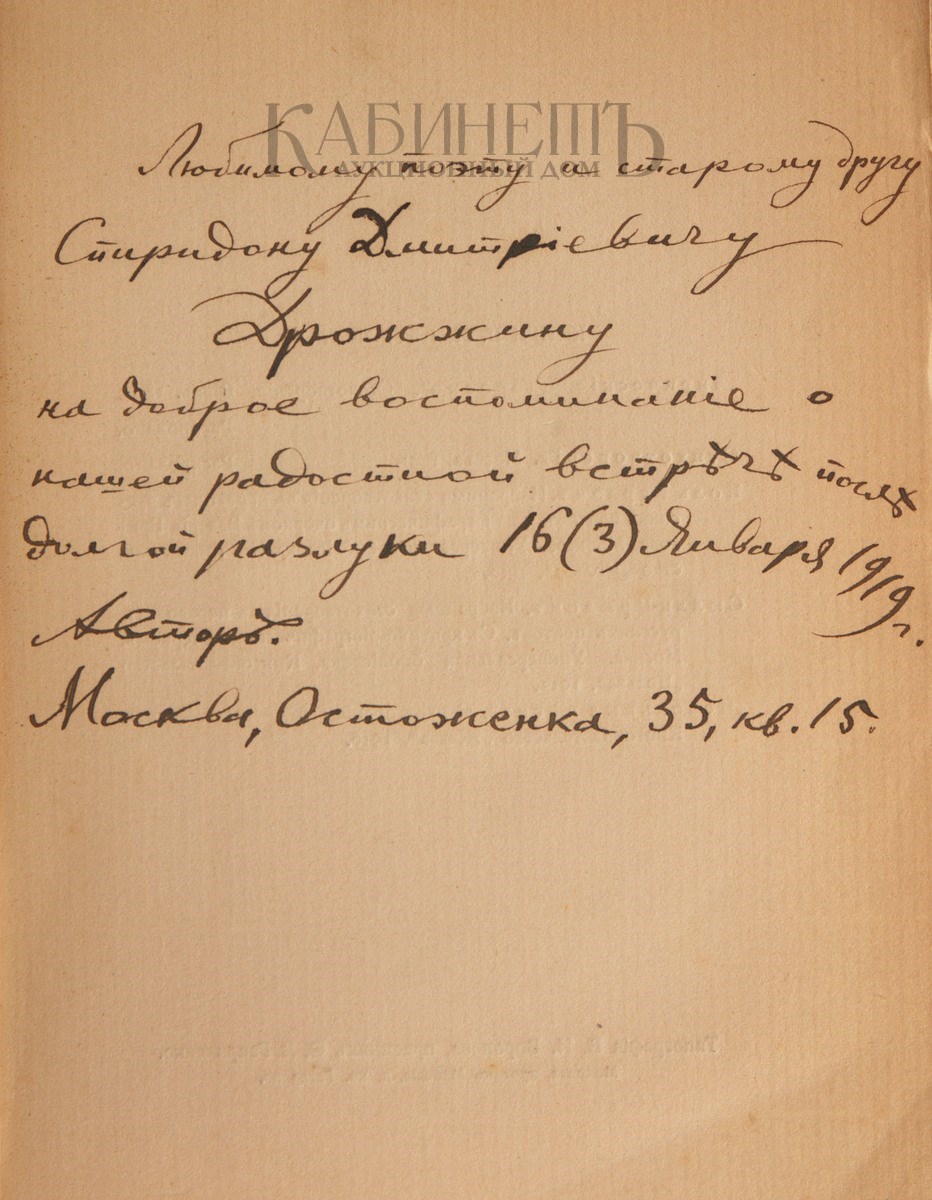 КАБИНЕТЪ
АУКЦИОННЫЙ ДОМ
Любимому поэту и старому другу
Спиридону Дмитріевичу
Дрожжину
на доброе воспоминаніе о
нашей радостной встрѣчѣ послѣ
долгой разлуки 16 (3) Января 1919 г.
Авторъ.
Москва, Остоженка, 35, кв. 15.